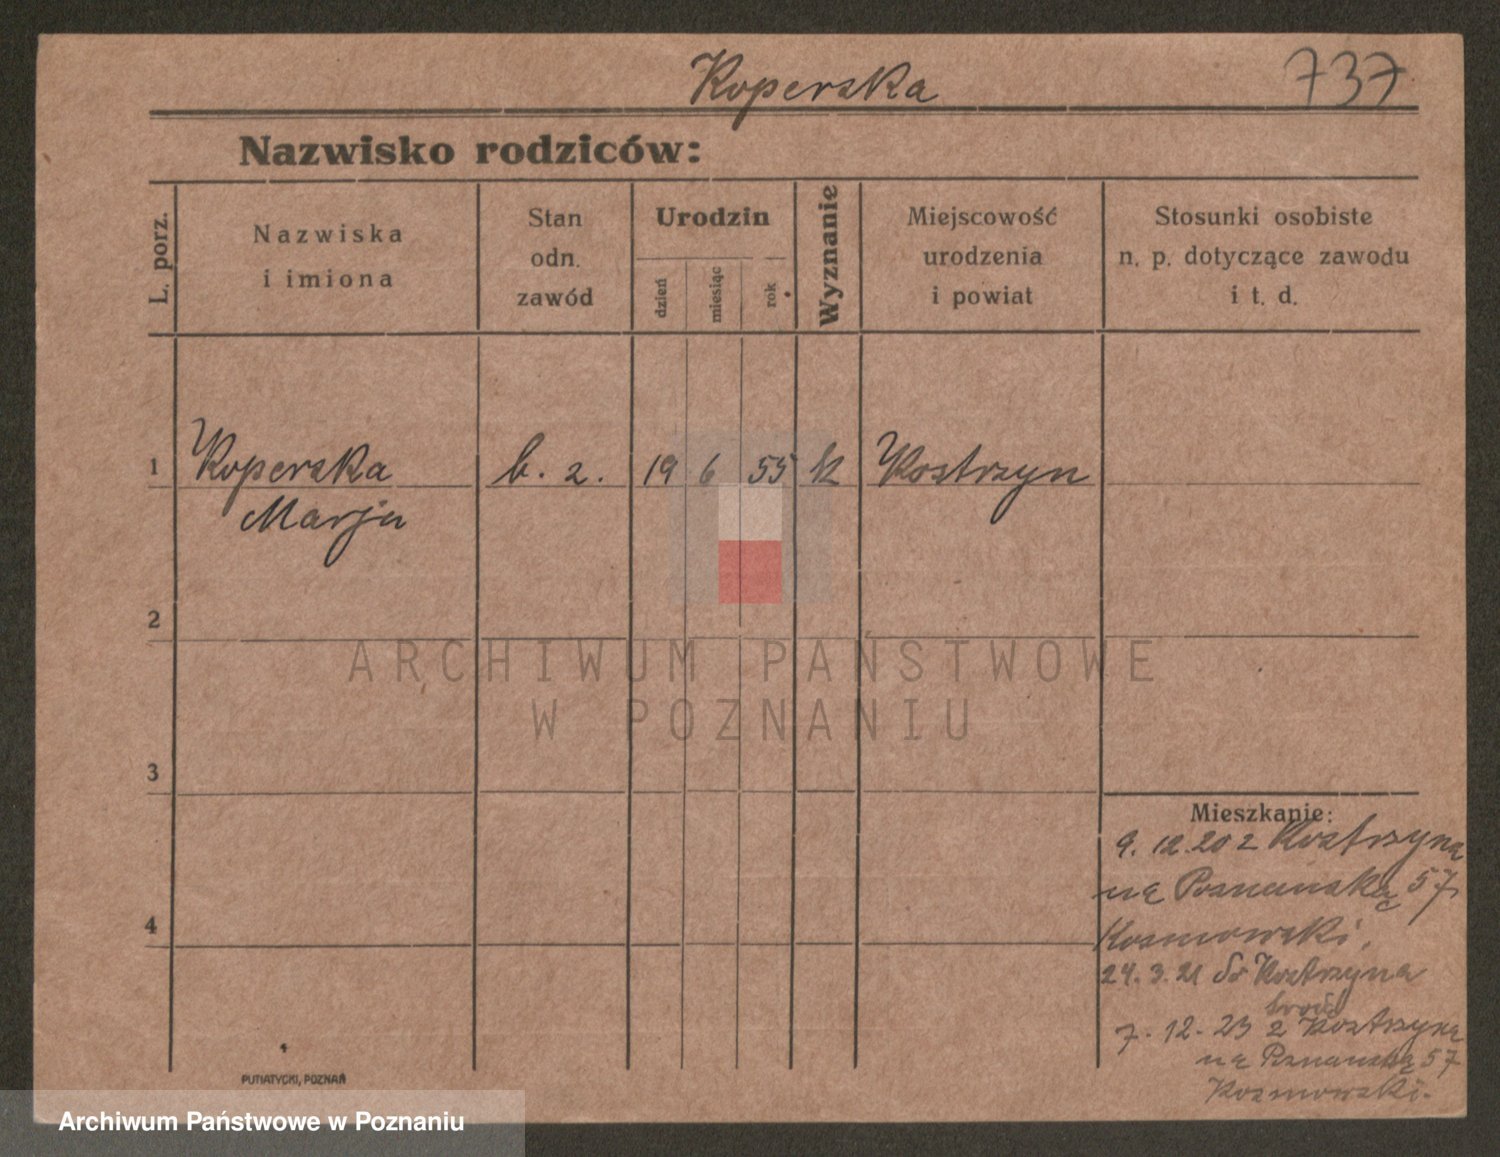 Koperska 737
Nazwisko rodziców:
L. porz.
Nazwiska
i imiona
Stan
odn.
zawód
Urodzin
dzień
miesiąc
rok
Wyznanie
Miejscowość
urodzenia
i powiat
Stosunki osobiste
n. p. dotyczące zawodu
i t. d.
1 Koperska b. z. 19 6 55 k Kostrzyn
Marja
2
ARCHIWUM PAŃSTWOWE
W POZNANIU
3
Mieszkanie:
9. 12. 20 z Kostrzyna
na Poznańską 57
4
Kosmowski.
24. 3. 21 do Kostrzyna
7. 12. 23 z Kostrzyna
na Poznańską 57
Kosmowski.
PUTIATYCKI, POZNAŃ
Archiwum Państwowe w Poznaniu